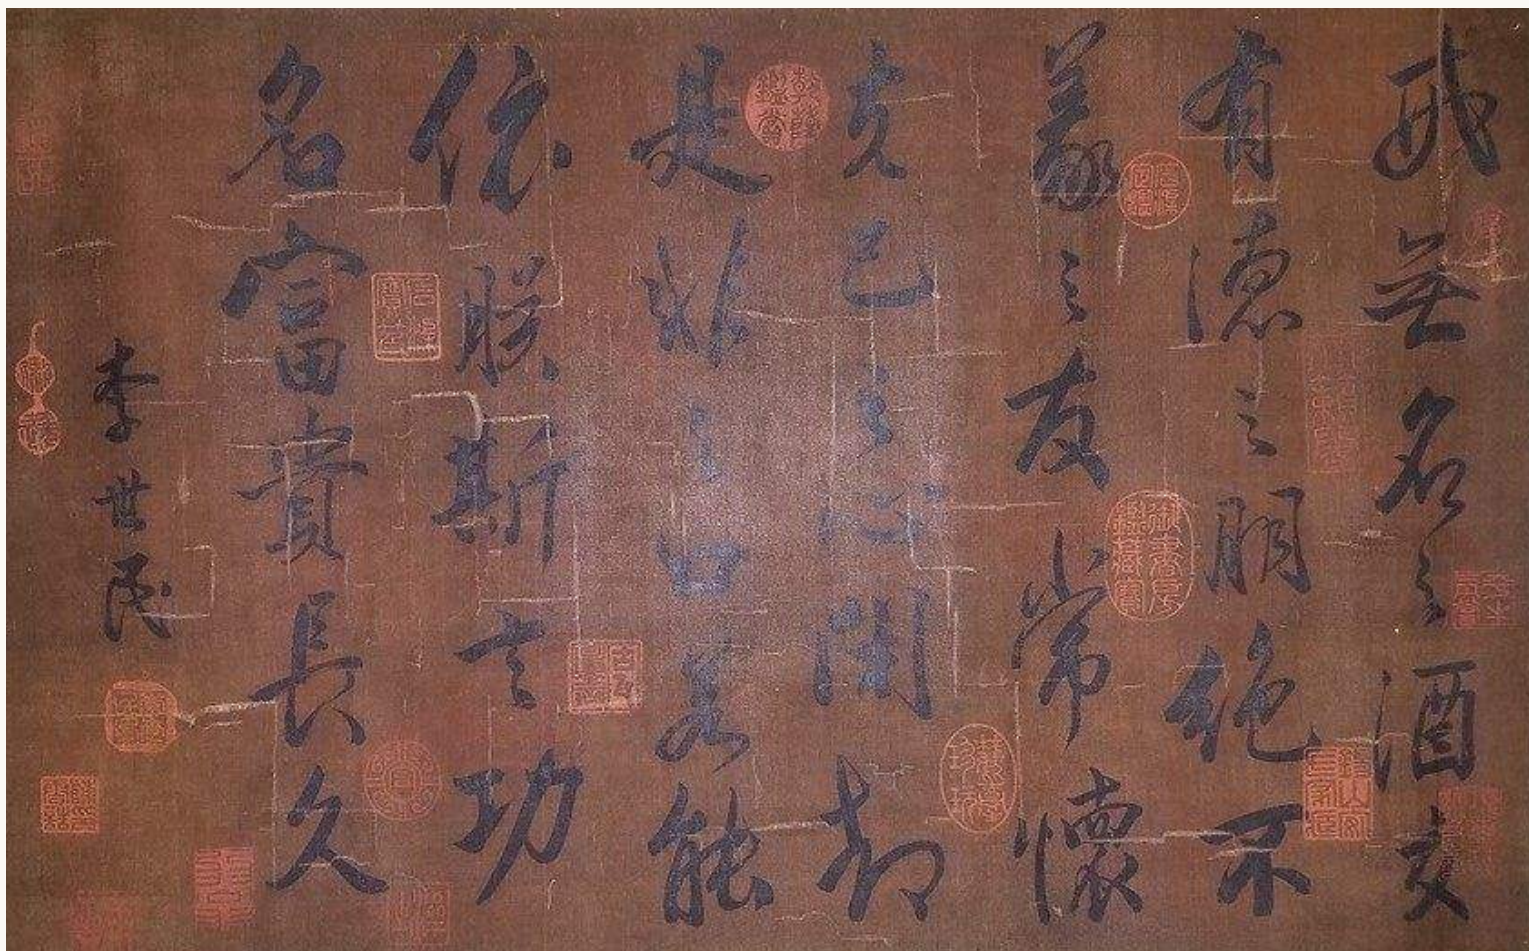 戒無名之酒交
有德之朋絕不
義之友常懷
克己之心閉却
是非之口若能
依朕斯言功
名富貴長久
李世民